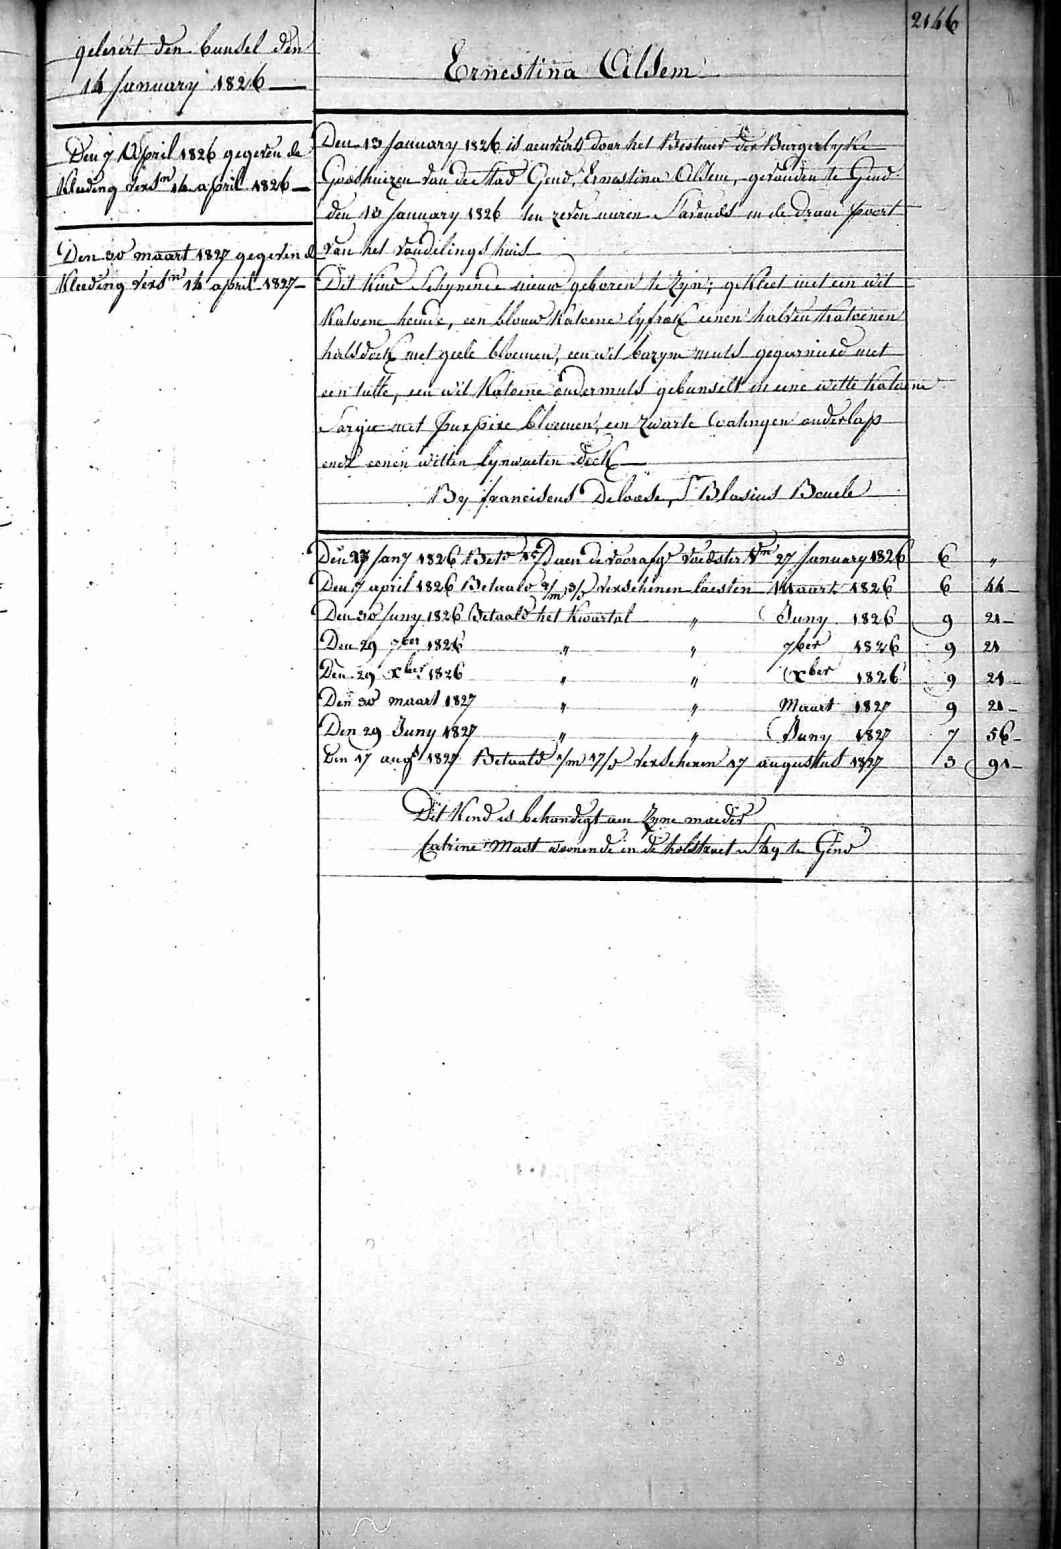 2146
gelevert den bunsel den
14 January 1826
Ernestina Alsem
Den 7 April 1826 gegeven de
Kleeding versn 14 april 1826
Den 30 maart 1827 gegeven de
Kleeding versn 14 april 1827
Den 13 January 1826 is aenveird door het Bestuur der Burgerlyke
Godshuizen van de Stad Gend, Ernestina Alsem, gevonden te Gend
den 12 January 1826 ten zeven uuren S'avonds in de draai poort
van het vondelings huis
Dit Kind Schynende nieuw geboren te Zyn; gekleet met een wit
Katoene hemde, een blouw Katoene lyfrok eenen halven Katoenen
halsdoek met geele bloemen, een wit bazyn muts gegarnierd met
een tulle, een wit Katoene ondermuts gebunselt in eene witte Katoene
Sargie met purpere bloemen, een zwarte Calingen onderlap
ende eenen witten lynwaeten doek
By franciscus Deloose, St Blasius Boucle
Den 27 Jany 1826 Betd aen de voorafge voedster Vn 27 January 1826 6 "
Den 7 april 1826 Betaald 2/m 3/d verschenen laesten Maart 1826 6 44
Den 30 Juny 1826 Betaald het Kwartal " Juny 1826 9 21
Den 29 7ber 1826 " " 7ber 1826 9 21
Den 29 Xber 1826 " " Xber 1826 9 21
Den 30 maart 1827 " " Maart 1827 9 21
Den 29 Juny 1827 " " Juny 1827 7 56
Den 17 augt 1827 Betaald 1/m 17/d verschenen 17 augustus 1827 3 91
Dit Kind is behandigt aen Zyne moeder
Catrine Mast woonende in de holstraet te Gend